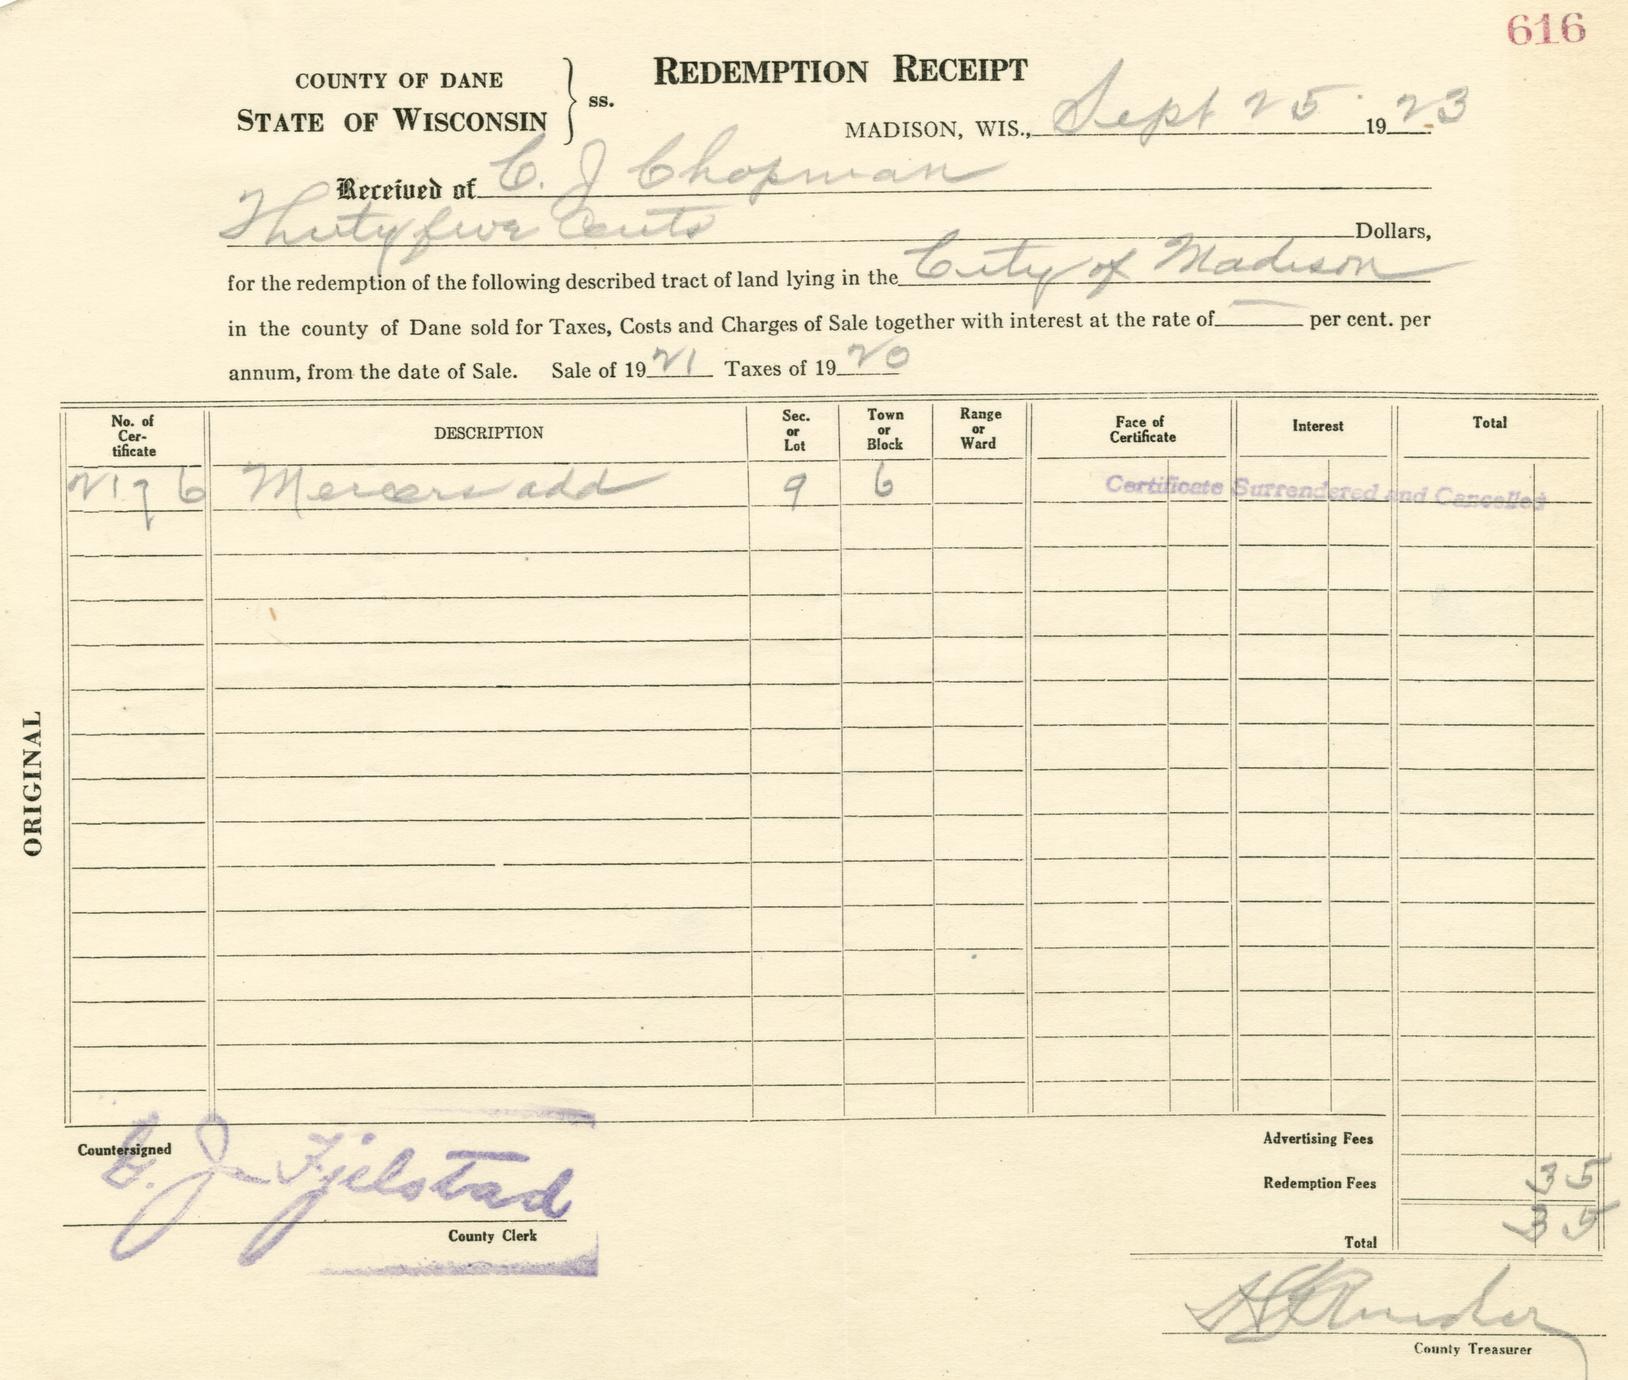 616
REDEMPTION RECEIPT
COUNTY OF DANE
STATE OF WISCONSIN
ss.
MADISON, WIS., Sept 25 1923
Received of C. J Chopman
Thirty five Cents Dollars,
for the redemption of the following described tract of land lying in the City of Madison
in the county of Dane sold for Taxes, Costs and Charges of Sale together with interest at the rate of — per cent. per
annum, from the date of Sale. Sale of 1921 Taxes of 1920
No. of Cer-tificate DESCRIPTION Sec. or Lot Town or Block Range or Ward Face of Certificate Interest Total
2176 Mercers add 9 6 Certificate Surrendered and Cancelled
ORIGINAL
Countersigned
C. J. Fjelstad
County Clerk
Advertising Fees
Redemption Fees 35
Total 35
County Treasurer